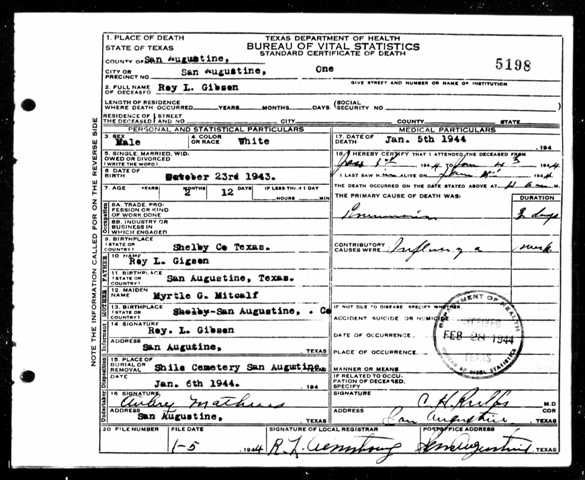 1. PLACE OF DEATH
STATE OF TEXAS
TEXAS DEPARTMENT OF HEALTH
BUREAU OF VITAL STATISTICS
STANDARD CERTIFICATE OF DEATH
COUNTY OF San Augustine,
CITY OR PRECINCT NO. San Augustine, One
5198
GIVE STREET AND NUMBER OR NAME OF INSTITUTION
2. FULL NAME OF DECEASED Roy L. Gibson
LENGTH OF RESIDENCE WHERE DEATH OCCURRED YEARS MONTHS DAYS (SOCIAL SECURITY NO.
RESIDENCE OF THE DECEASED STREET AND NO. CITY COUNTY STATE
PERSONAL AND STATISTICAL PARTICULARS
3. SEX Male
4. COLOR OR RACE White
5. SINGLE, MARRIED, WID-OWED OR DIVORCED (WRITE THE WORD)
6. DATE OF BIRTH October 23rd 1943.
7. AGE YEARS MONTHS 2 DAYS 12 IF LESS THAN 1 DAY HOURS MIN
8A. TRADE, PRO-FESSION OR KIND OF WORK DONE
8B. INDUSTRY OR BUSINESS IN WHICH ENGAGED
9. BIRTHPLACE (STATE OR COUNTRY) Shelby Co Texas.
10. NAME Roy L. Gigson
11. BIRTHPLACE (STATE OR COUNTRY) San Augustine, Texas.
12. MAIDEN NAME Myrtle G. Mitcalf
13. BIRTHPLACE (STATE OR COUNTRY) Shelby-San Augustine, . Co
14. SIGNATURE Roy. L. Gibson
ADDRESS San Augutine, TEXAS
15. PLACE OF BURIAL OR REMOVAL Shilo Cemetery San Augustine,
DATE Jan. 6th 1944. 194
16. SIGNATURE Avbry Mathews
ADDRESS San Augustine, TEXAS
MEDICAL PARTICULARS
17. DATE OF DEATH Jan. 5th 1944 194
18. I HEREBY CERTIFY THAT I ATTENDED THE DECEASED FROM
194
LAST SAW ALIVE ON 1944
THE DEATH OCCURRED ON THE DATE STATED ABOVE AT M
THE PRIMARY CAUSE OF DEATH WAS: DURATION
Pneumonia 3 days
CONTRIBUTORY CAUSES WERE Influenza week
IF NOT DUE TO DISEASE SPECIFY WHETHER
ACCIDENT SUICIDE OR HOMICIDE
DATE OF OCCURRENCE
PLACE OF OCCURRENCE
MANNER OR MEANS
IF RELATED TO OCCU-PATION OF DECEASED, SPECIFY
DEPARTMENT OF HEALTH
RECEIVED
FEB 28 1944
TEXAS
BUREAU OF VITAL STATISTICS
SIGNATURE M.D
ADDRESS San Augustine COR TEXAS
20 FILE NUMBER
FILE DATE 1-5 1944
SIGNATURE OF LOCAL REGISTRAR R L Armstrong
POSTOFFICE ADDRESS San Augustine TEXAS
NOTE THE INFORMATION CALLED FOR ON THE REVERSE SIDE
Occupation
FATHER
MOTHER
Informant
Undertaker